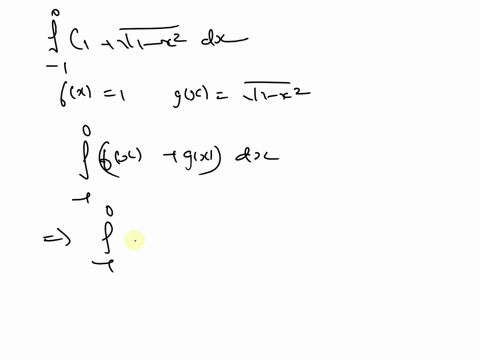 ∫_{-1}^{0} (1 + √(1-x²) dx
f(x) = 1 g(x) = √(1-x²)
∫_{-1}^{0} (f(x) + g(x)) dx
⇒ ∫_{-1}^{0}